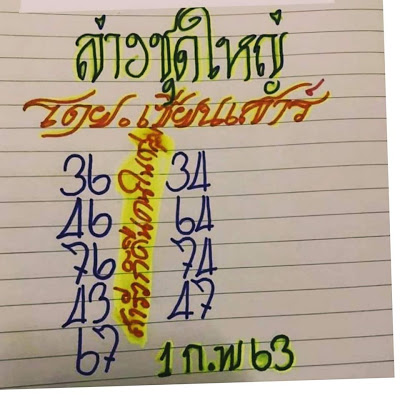 ล่างชุดใหญ่
โดย.เซียนเสาร์
36 34
46 64
76 74
43 47
67
1 ก.พ 63